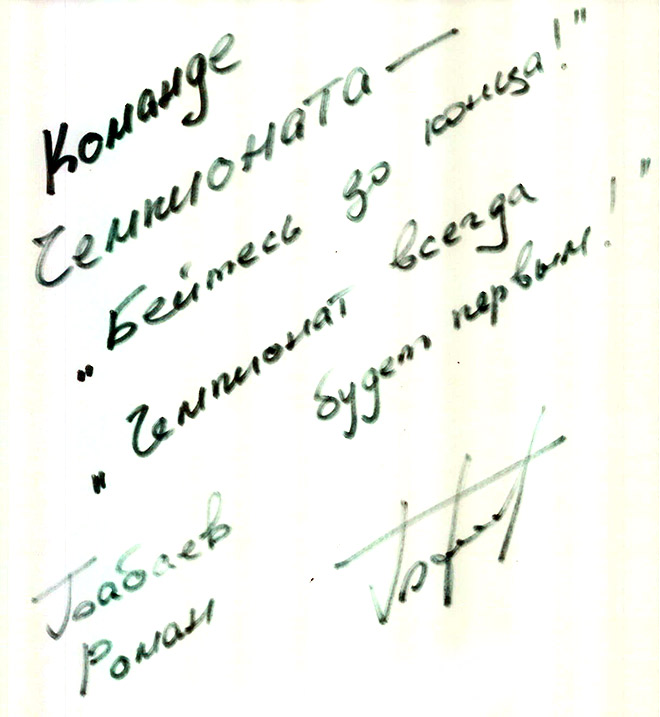 Команде
Чемпионата —
„Бейтесь до конца!"
„Чемпионат всегда
будет первым!"
Бабаев
Роман